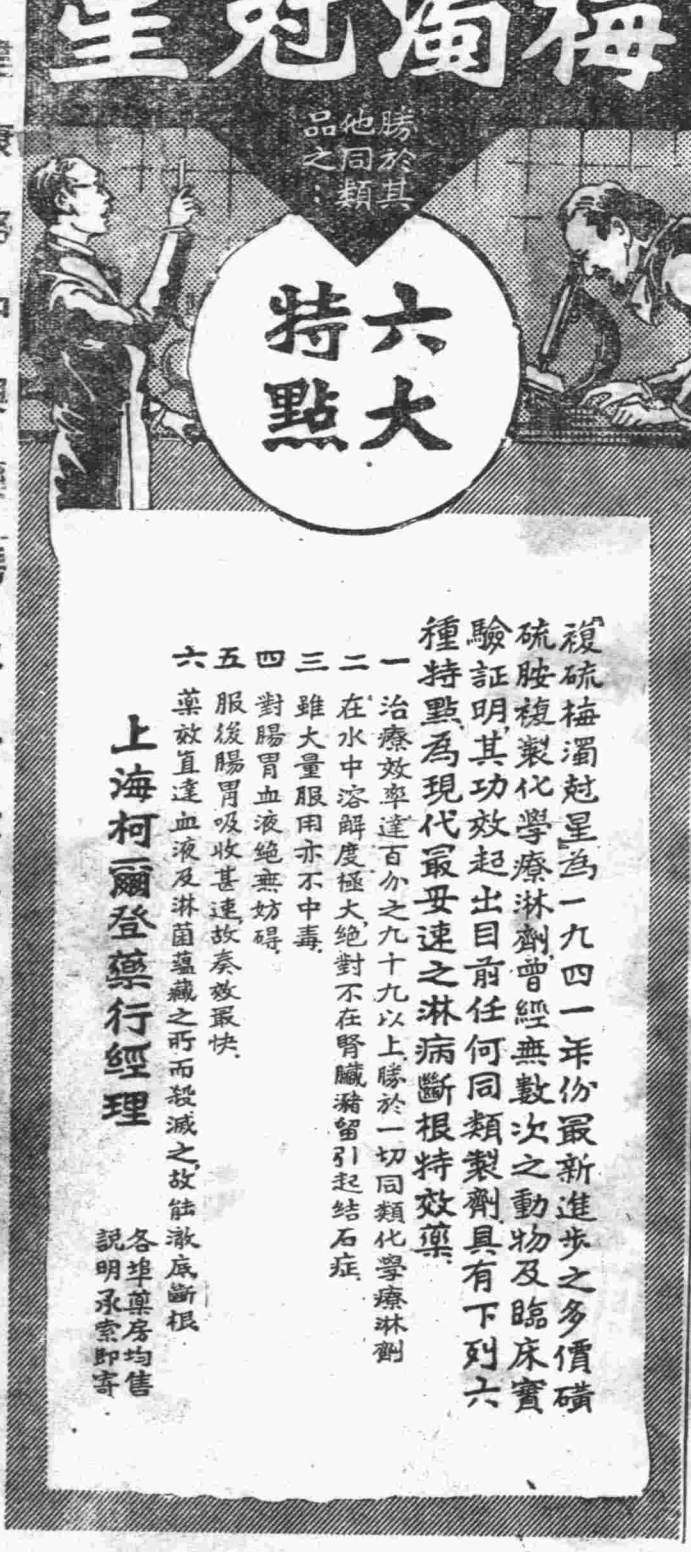 梅濁尅星
勝於其
他同類
品之：
六大
特點
『複硫梅濁尅星』為一九四一年份最新進步之多價磺
硫胺複製化學療淋劑，曾經無數次之動物及臨床實
驗証明，其功效起出目前任何同類製劑，具有下列六
種特點，為現代最妥速之淋病斷根特效藥。
一 治療效率達百分之九十九以上，勝於一切同類化學療淋劑
二 在水中溶解度極大，絕對不在腎臟瀦留引起結石症。
三 雖大量服用亦不中毒。
四 對腸胃血液絕無妨碍。
五 服後腸胃吸收甚速，故奏效最快。
六 藥效直達血液及淋菌蘊藏之所而殺滅之，故能澈底斷根
上海柯爾登藥行經理
各埠藥房均售
説明承索即寄